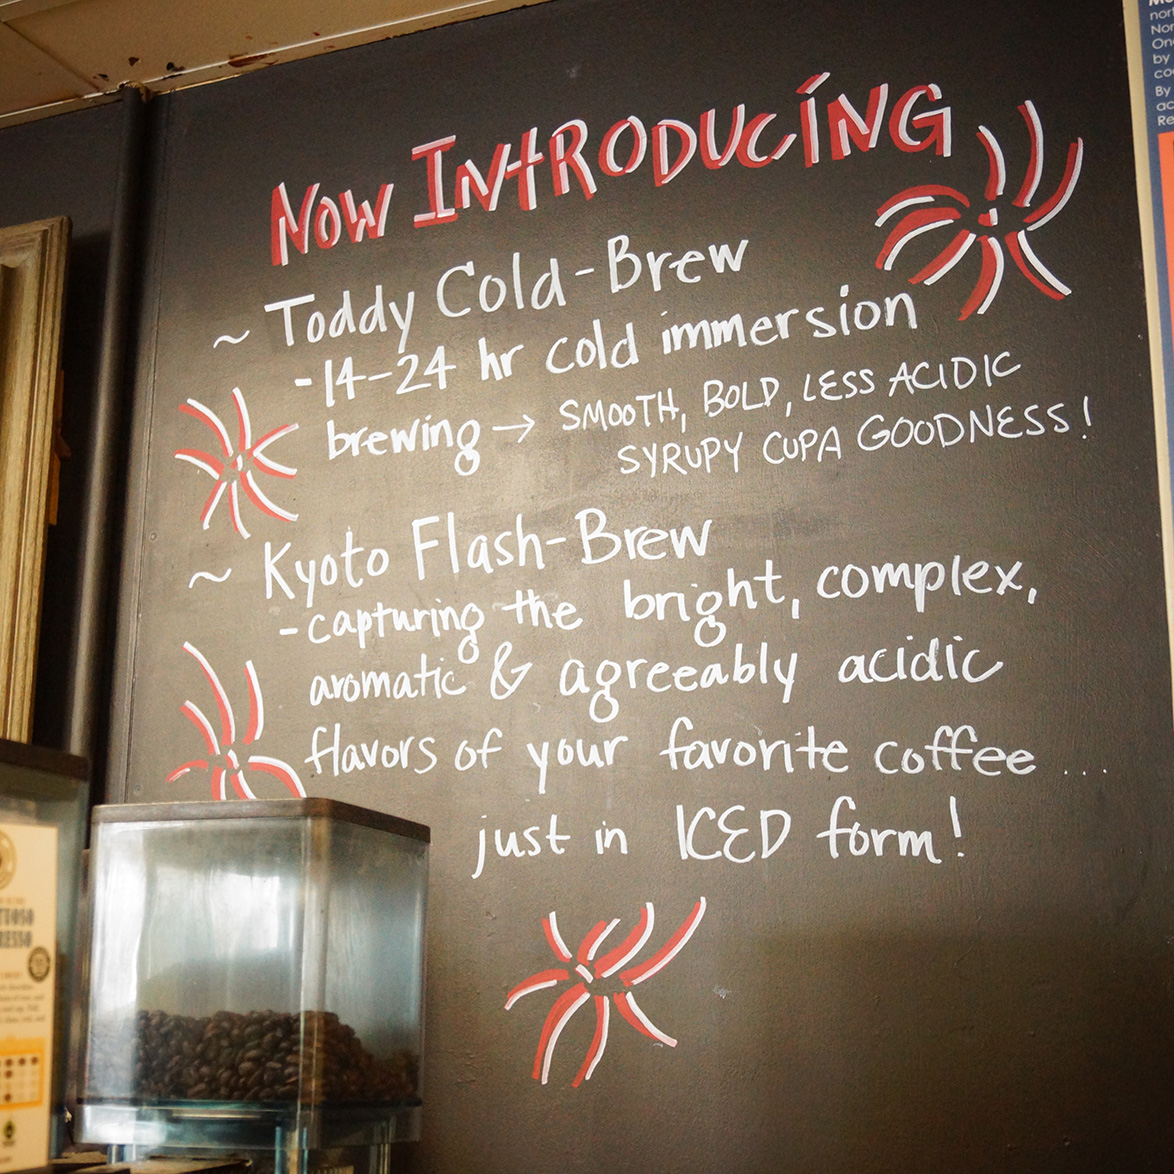 Now INTRODUCING
~ Toddy Cold-Brew
-14-24 hr cold immersion
brewing → SMOOTH, BOLD, LESS ACIDIC
SYRUPY CUPA GOODNESS!
~ Kyoto Flash-Brew
-capturing the bright, complex,
aromatic & agreeably acidic
flavors of your favorite coffee ...
just in ICED form!